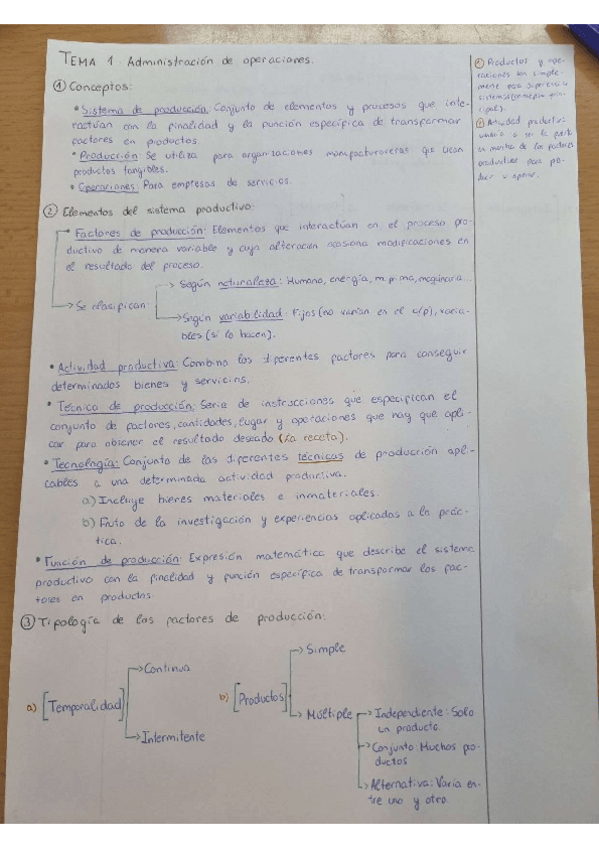 TEMA 1. Administración de operaciones.
① Conceptos:
• Sistema de producción: Conjunto de elementos y procesos que inte-
ractúan con la finalidad y la función específica de transformar
factores en productos.
• Producción: Se utiliza para organizaciones manufactureras que crean
productos tangibles.
• Operaciones: Para empresas de servicios.
② Elementos del sistema productivo:
Factores de producción: Elementos que interactúan en el proceso pro-
ductivo de manera variable y cuya alteración ocasiona modificaciones en
el resultado del proceso.
Se clasifican:
Según naturaleza: Humano, energía, m. prima, maquinaria...
Según variabilidad: Fijos (no varían en el c/p), varia-
bles (sí lo hacen).
• Actividad productiva: Combina los diferentes factores para conseguir
determinados bienes y servicios.
• Técnica de producción: Serie de instrucciones que especifican el
conjunto de factores, cantidades, lugar y operaciones que hay que apli-
car para obtener el resultado deseado (La receta).
• Tecnología: Conjunto de las diferentes técnicas de producción apli-
cables a una determinada actividad productiva.
a) Incluye bienes materiales e inmateriales.
b) Fruto de la investigación y experiencias aplicadas a la prác-
tica.
• Función de producción: Expresión matemática que describe el sistema
productivo con la finalidad y función específica de transformar los fac-
tores en productos.
③ Tipología de los factores de producción:
a) [Temporalidad]
Continua
Intermitente
b) [Productos]
Simple
Múltiple
Independiente: Solo
un producto.
Conjunto: Muchos pro-
ductos
Alternativa: Varía en-
tre uno y otro.
Productos y ope-
raciones son simple-
mente
Actividad productiva
vendría a ser la parte
en marcha de los factores
productivos para po-